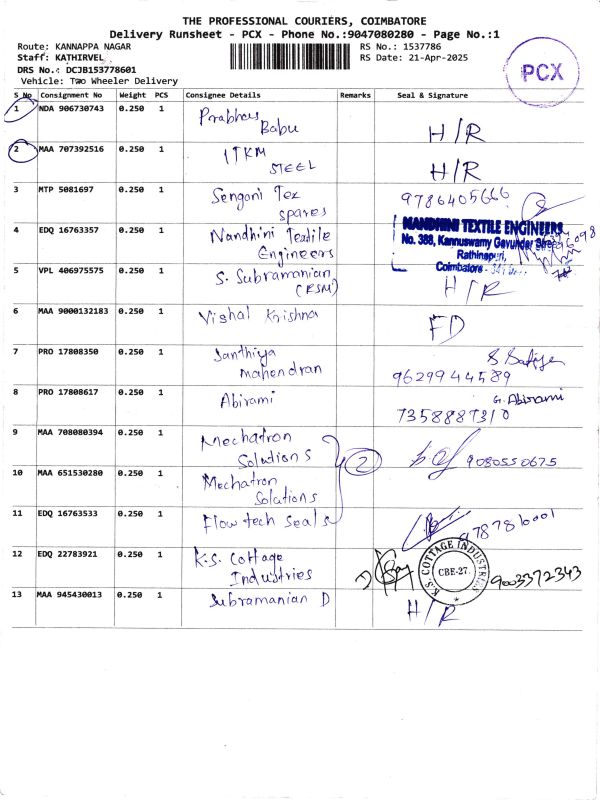 THE PROFESSIONAL COURIERS, COIMBATORE
Delivery Runsheet - PCX - Phone No.:9047080280 - Page No.:1
Route: KANNAPPA NAGAR
RS No.: 1537786
Staff: KATHIRVEL
RS Date: 21-Apr-2025
DRS No.: DCJB153778601
Vehicle: Two Wheeler Delivery
PCX
S No Consignment No Weight PCS Consignee Details Remarks Seal & Signature
1 NDA 906730743 0.250 1 Prabhu Babu H/R
2 MAA 707392516 0.250 1 ITKM STEEL H/R
3 MTP 5081697 0.250 1 Sengani Tex spares 9786405666
4 EDQ 16763357 0.250 1 Nandhini Textile Engineers
NANDHINI TEXTILE ENGINEERS
No. 388, Kannuswamy Gavunder Street
Rathinapuri,
Coimbatore -
5 VPL 406975575 0.250 1 S. Subramanian (ESM) H/R
6 MAA 9000132183 0.250 1 Vishal Krishna FD
7 PRO 17808350 0.250 1 Santhiya Mahendran 9629944589
8 PRO 17808617 0.250 1 Abirami G. Abirami 7358887310
9 MAA 708080394 0.250 1 Mechatron Solutions 2 9080550675
10 MAA 651530280 0.250 1 Mechatron Solutions
11 EDQ 16763533 0.250 1 Flowtech Seals
12 EDQ 22783921 0.250 1 K.S. Cottage Industries 9003372343
K.S. COTTAGE INDUSTRIES
CBE-27.
13 MAA 945430013 0.250 1 Subramanian D H/R